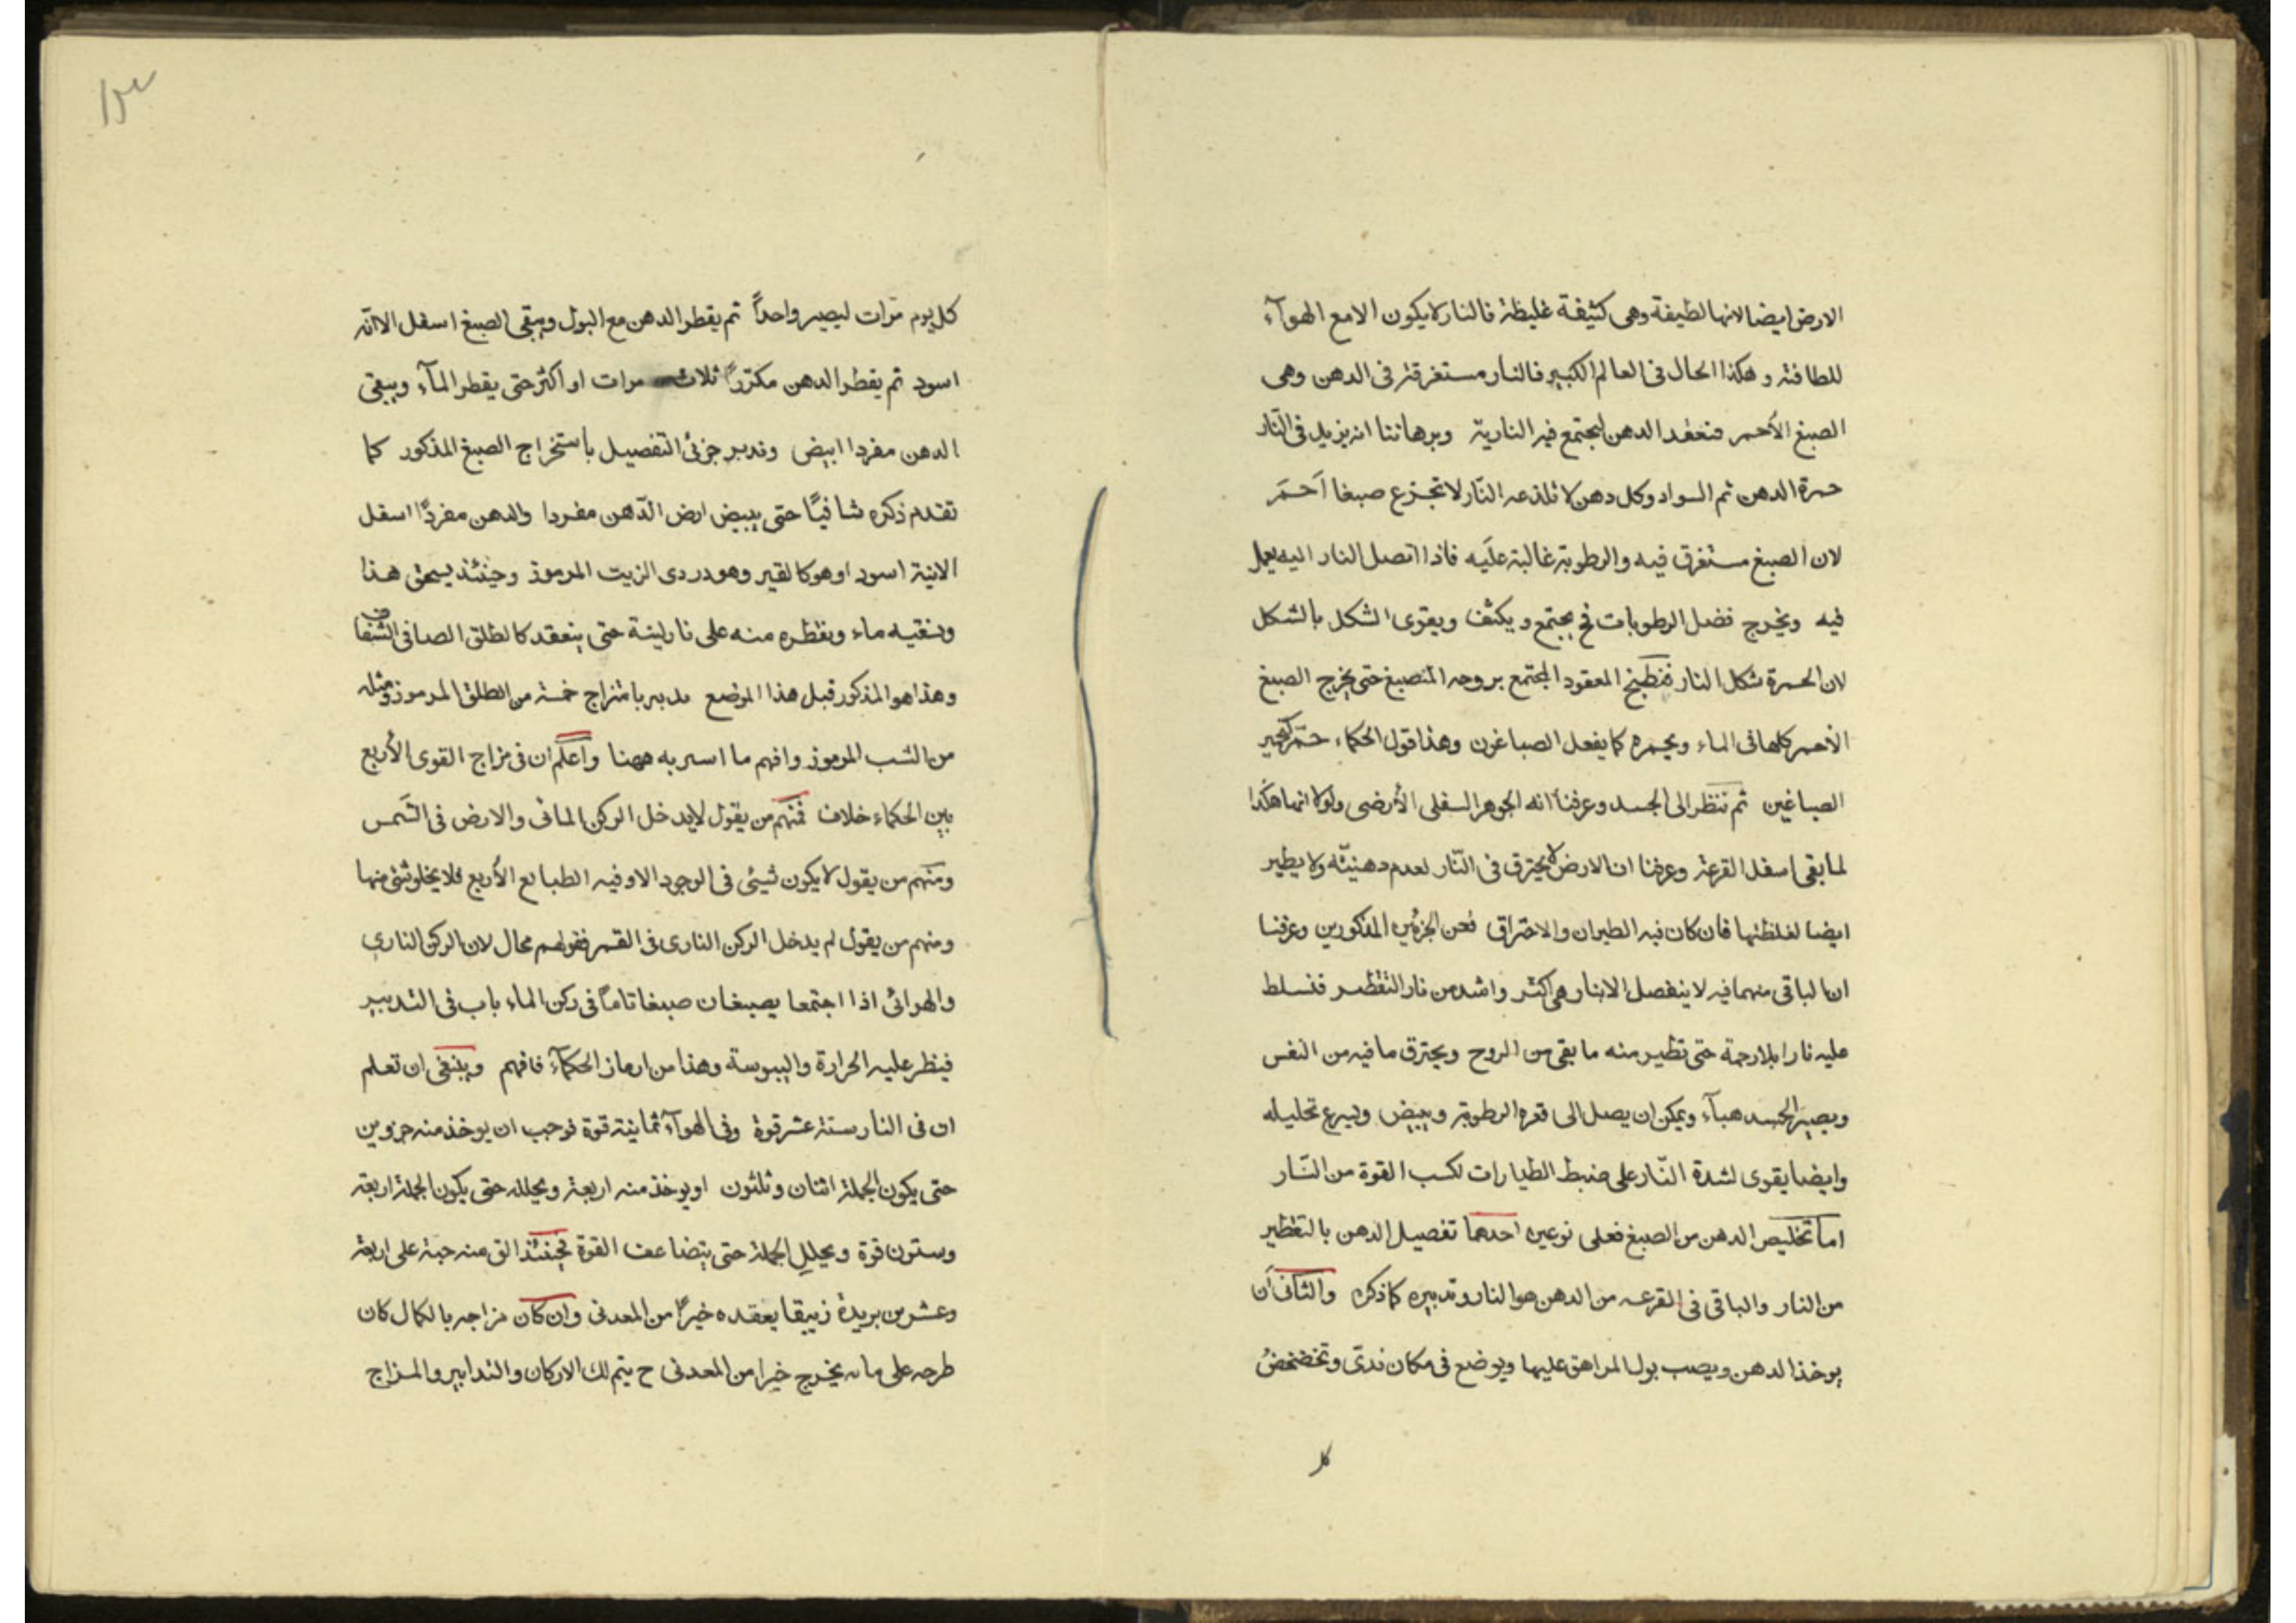 الارض ايضا لانها لطيفة وهى كثيفة غليظة فالنار لا يكون الا مع الهوآء
للطافته وهكذا الحال فى العالم الكبير فالنار مستغرقة فى الدهن وهى
الصبغ الأحمر فنعقد الدهن ليجتمع فيه النارية وبرهاننا انه يزيد فى النّار
حمرة الدهن ثم السواد وكل دهن لا تلذعه النّار لا تجزع صبغا اَحمَر
لان الصبغ مستغرق فيه والرطوبة غالبة علَيه فاذا اتصل النار اليه يعمل
فيه ويخرج فضل الرطوبات فح يجتمع ويكثف ويقوى الشكل بالشكل
لان الحمرة شكل النار فنطبخ المعقود المجتمع بروحه المنصبغ حتى يخرج الصبغ
الأحمر كلها فى الماء ويحمره كما يفعل الصباغون وهذا قول الحكماء حمّر كتحمير
الصباغين ثم ننظر الى الجسد وعرفنا انه الجوهر السفلى الأرضى ولولا انها هكذا
لما بقى اسفل القرعة وعرفنا ان الارض لا يحترق فى النّار لعدم دهنيّته ولا يطير
ايضا لغلظتها فان كان فيه الطيران والاحتراق فمن الجزئين المذكورين وعرفنا
ان الباقى منهما فيه لا ينفصل الا بنار هى اكثر واشد من نار التقطير فنسلط
عليه نارا بلا رحمة حتى تطير منه ما بقى من الروح ويحترق ما فيه من النفس
ويصير الجسد هبآء ويمكن ان يصل الى قعره الرطوبة ويبيض ويسرع تحليله
وايضا يقوى لشدة النّار على ضبط الطيارات لكسب القوة من النّار
اما تخليص الدهن من الصبغ فعلى نوعين احدهما تفصيل الدهن بالتقطير
من النار والباقى فى القرعه من الدهن هو النار وتدبيره كما ذكره والثانى ان
يوخذ الدهن ويصب بول المراهق عليها ويوضع فى مكان ندىّ وتخضخضُ
كل
كل يوم مرّات ليصير واحداً ثم يقطر الدهن مع البول ويبقى الصبغ اسفل الا انّه
اسود ثم يقطر الدهن مكرّراً ثلاث مرات او اكثر حتى يقطر المآء ويبقى
الدهن مفردا ابيض وندبر جزئى التفصيل باستخراج الصبغ المذكور كما
تقدم ذكره شافيًا حتى يبيض ارض الدّهن مفردا والدهن مفردًا اسفل
الانية اسود او هو كالقير وهو دردى الزيت المرموز وحينئذ يسحق هذا
ونسقيه ماء ونقطره منه على نار لينة حتى ينعقد كالطلق الصافى الشفاف
وهذا هو المذكور قبل هذا الموضع مدبر بامتزاج خمسة من الطلق المرموز ومثله
من الشب المرموز وافهم ما اسر به ههنا واعلم ان فى مزاج القوى الأربع
بين الحكماء خلاف فمنهم من يقول لا يدخل الركن المائى والارض فى الشَمس
ومنهم من يقول لا يكون شيئى فى الوجود الا وفيه الطبايع الأربع فلا يخلو شئ منها
ومنهم من يقول لم يدخل الركن النارى فى القمر فقولهم محال لان الركن النارى
والهوائى اذا اجتمعا يصبغان صبغا تاماً فى ركن الماء باب فى التدبير
فينظر عليه الحرارة واليبوسة وهذا من ارماز الحكمآء فافهم وينبغى ان تعلم
ان فى النار ستة عشر قوة وفى الهوآء ثمانية قوة فوجب ان يوخذ منه جزوين
حتى يكون الجملة اثنان وثلثون او يوخذ منه اربعة ويحلله حتى يكون الجملة اربعة
وستون قوة ويحلل الجملة حتى يتضاعف القوة فحينئذ الق منه حبة على اربعة
وعشرين بريدة زيبقا يعقده خيراً من المعدنى وان كان مزاجه بالكمال كان
طرحه على مانه يخرج خيرا من المعدنى ح يتم لك الاركان والتدابير والمزاج